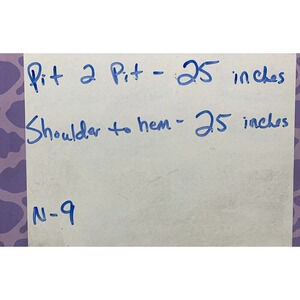 Pit 2 Pit - 25 inches
Shoulder to hem - 25 inches
N-9